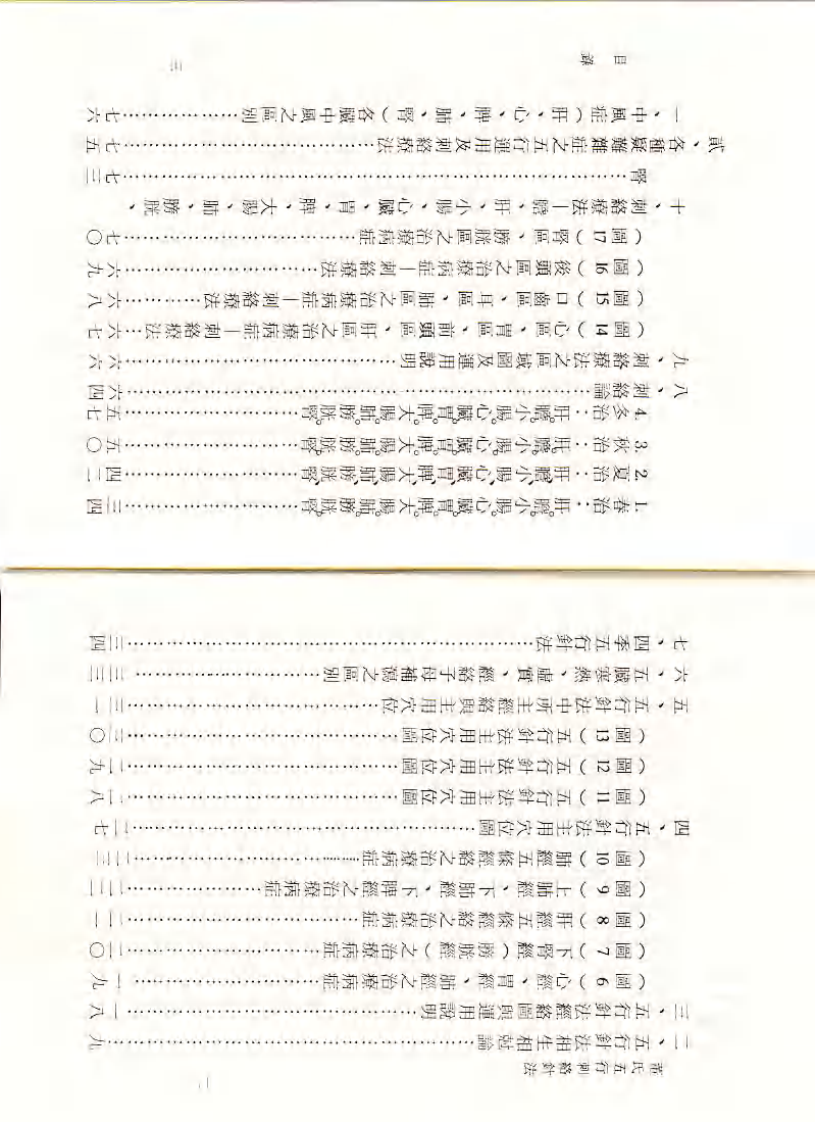 蔣氏五行刺絡針法
二
二、五行針法相生相尅論……………………九
三、五行針法經絡圖與運用說明……………………一八
（圖6）心經、胃經、肺經之治療病症……………………一九
（圖7）下腎經（膀胱經）之治療病症……………………二〇
（圖8）肝經五條經絡之治療病症……………………二一
（圖9）上肺經、下肺經、下脾經之治療病症……………………二二
（圖10）肺經五條經絡之治療病症……………………二三
四、五行針法主用穴位圖……………………二七
（圖11）五行針法主用穴位圖……………………二八
（圖12）五行針法主用穴位圖……………………二九
（圖13）五行針法主用穴位圖……………………三〇
五、五行針法中所主經絡與主用穴位……………………三一
六、五臟寒熱、虛實、經絡子母補瀉之區別……………………三三
七、四季五行針法……………………三四
1.春治：肝。膽。小腸。心臟。胃。脾。大腸。肺。膀胱。腎。……………………三四
2.夏治：肝、膽、小腸、心臟、胃、脾、大腸、肺、膀胱、腎……………………四二
3.秋治：肝。膽。小腸。心臟。胃。脾。大腸。肺。膀胱。腎。……………………五〇
4.冬治：肝。膽。小腸。心臟。胃。脾。大腸。肺。膀胱。腎。……………………五七
八、刺絡論……………………六四
九、刺絡療法之區域圖及運用說明……………………六六
（圖14）心區、胃區、前頭區、肝區之治療病症—刺絡療法…六七
（圖15）口齒區、耳區、肺區之治療病症—刺絡療法…………六八
（圖16）後頭區之治療病症—刺絡療法……………………六九
（圖17）腎區、膀胱區之治療病症……………………七〇
十、刺絡療法—膽、肝、小腸、心臟、胃、脾、大腸、肺、膀胱、
腎……………………七三
貳、各種疑難雜症之五行運用及刺絡療法……………………七五
一、中風症（肝、心、脾、肺、腎）各臟中風之區別……………七六
目錄
三